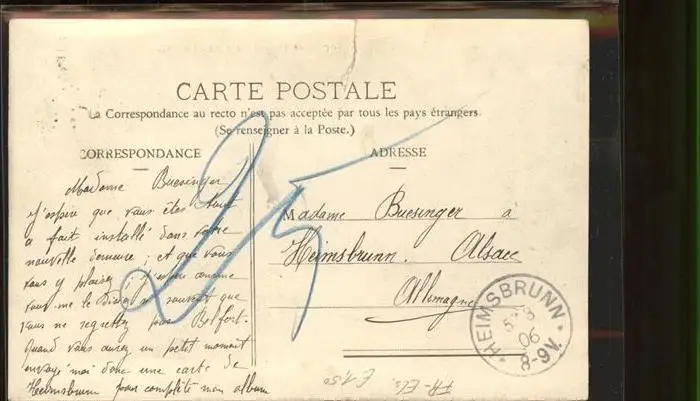 CARTE POSTALE
La Correspondance au recto n'est pas acceptée par tous les pays étrangers
(Se renseigner à la Poste.)
CORRESPONDANCE
ADRESSE
Madame Buesinger
J'espère que vous êtes tout
a fait installé dans votre
nouvelle demeure; et que vous
vous y plaisez;
vous me le souvent que
vous ne regrettez pas Belfort.
Quand vous aurez un petit moment
envoyez moi donc une carte de
Heimsbrunn pour complèté mon album
Madame Buesinger à
Heimsbrunn. Alsace
Allemagne
HEIMSBRUNN
06
8-9V.
25
FR-Els.
£1,50